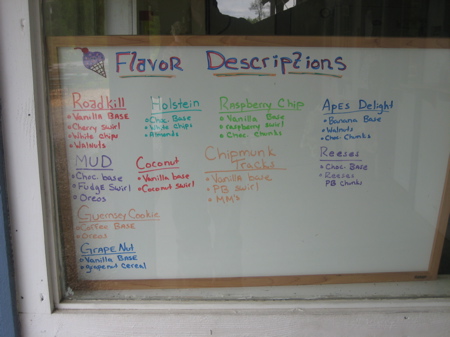 Flavor Descriptions
Roadkill
Vanilla BASE
Cherry swirl
White chips
Walnuts
Holstein
Choc. Base
White chips
Almonds
Raspberry Chip
Vanilla Base
raspberry swirl
Choc. Chunks
Apes Delight
Banana Base
Walnuts
Choc. Chunks
MUD
Choc. base
Fudge Swirl
Oreos
Coconut
Vanilla base
Coconut swirl
Chipmunk
Tracks
Vanilla base
PB swirl
Reeses
Choc. Base
Reeses
PB chunks
Guernsey Cookie
Coffee BASE
Oreos
Grape Nut
Vanilla BASE
grapenut cereal